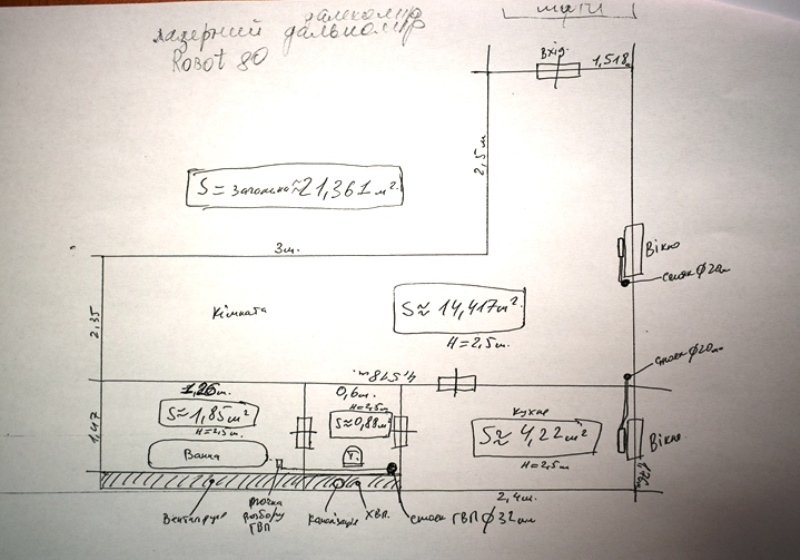 далекомір
лазерний дальномір
Robot 80
Вхід.
1,518м
2,5м
S = Загальна ≈ 21,361 м².
3м.
Вікно
стояк Ф20мм
2,35
Кімната
S ≈ 14,417м².
H = 2,5м.
4,518м.
стояк Ф20мм
1,26м.
0,6м.
1,47
S ≈ 1,85м²
H = 2,5м.
H = 2,5м.
S ≈ 0,88м²
Кухня
S ≈ 4,22м²
H = 2,5м.
Вікно
Ванна
Т.
2,4м.
Вентиляція
точка
розбору
ГВП
Каналізація
ХВП.
стояк ГВП Ф32мм